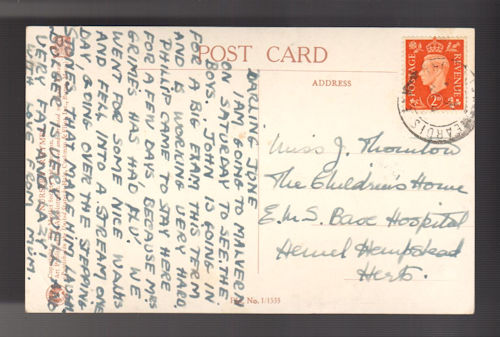 POST CARD
ADDRESS
POSTAGE
REVENUE
2D
DARLING JUNE
I AM GOING TO MALVERN
ON SATURDAY TO SEE THE
BOYS. JOHN IS GOING IN
FOR A BIG EXAM THIS TERM
AND IS WORKING VERY HARD.
PHILIP CAME TO STAY HERE
FOR A FEW DAYS BECAUSE MRS
GRIMES HAS HAD FLU. WE
WENT FOR SOME NICE WALKS
AND FELL INTO A STREAM ONE
DAY GOING OVER THE STEPPING
STONES. THAT MADE HIM LAUGH.
IS VERY WELL AND
VERY FAT AND LAZY.
WITH LOVE FROM MUM.
Miss J. Thornton
The Children's Home
E.M.S. Base Hospital
Hemel Hempstead
Herts.
No. 1/1535